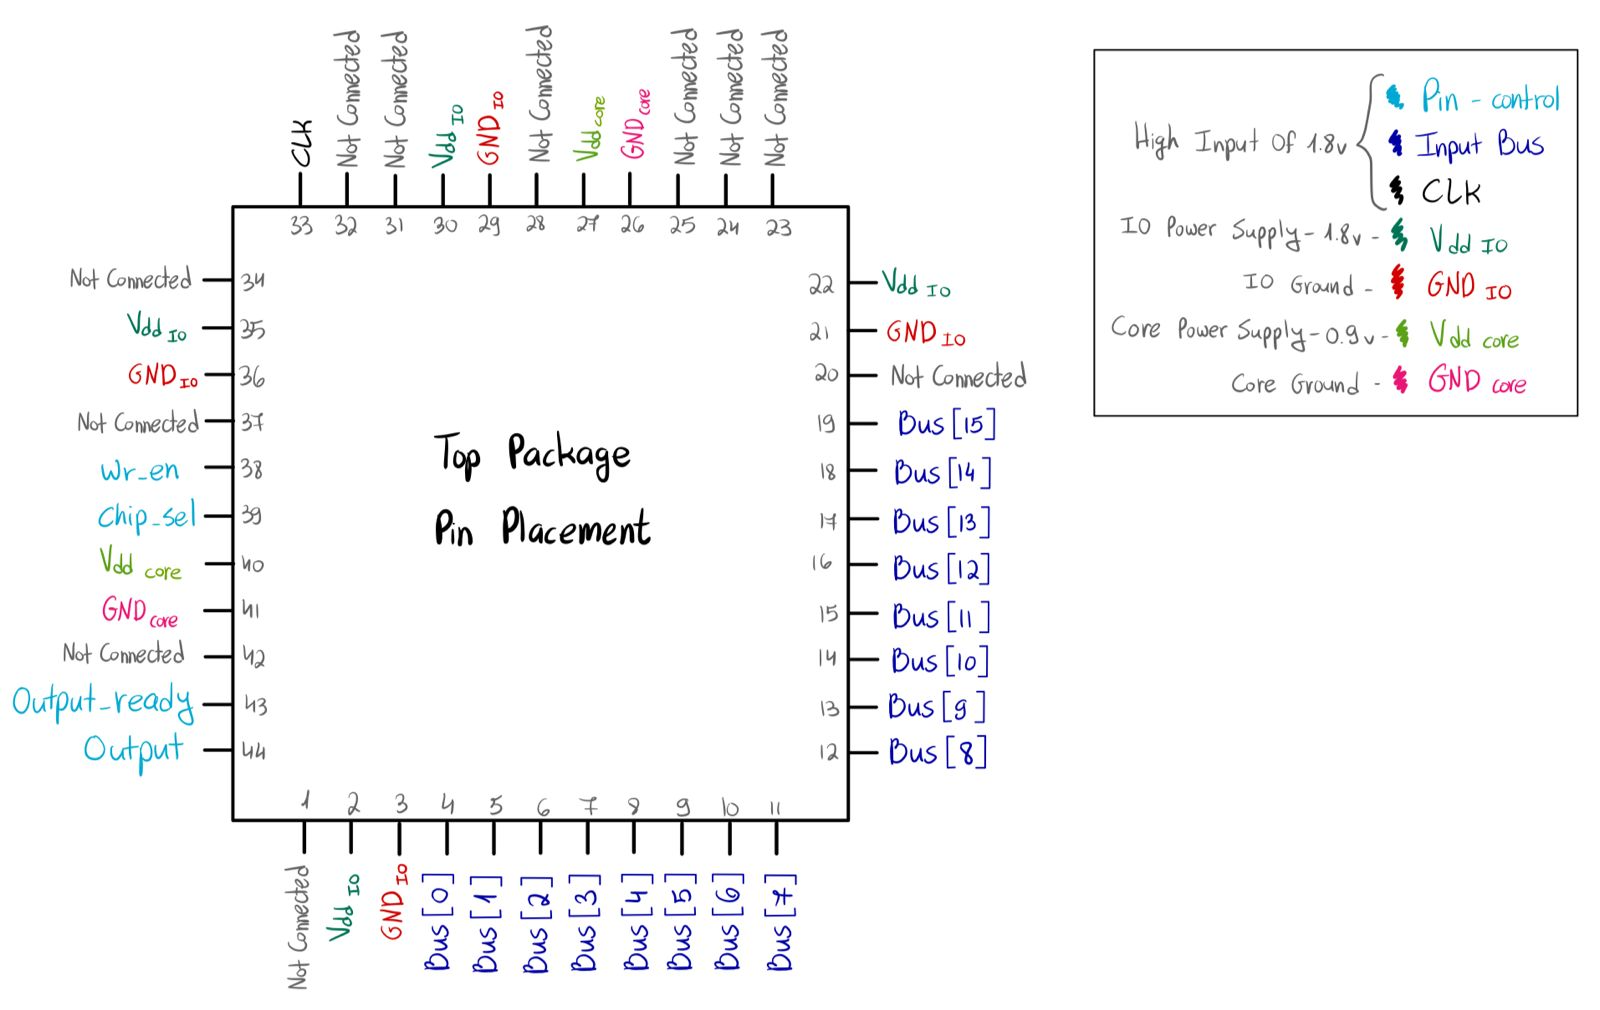 CLK
Not Connected
Not Connected
Vdd IO
GND IO
Not Connected
Vdd core
GND core
Not Connected
Not Connected
Not Connected
33 32 31 30 29 28 27 26 25 24 23
Not Connected 34
Vdd IO 35
GND IO 36
Not Connected 37
Wr_en 38
Chip_sel 39
Vdd core 40
GND core 41
Not Connected 42
Output_ready 43
Output 44
Top Package
Pin Placement
22 Vdd IO
21 GND IO
20 Not Connected
19 Bus[15]
18 Bus[14]
17 Bus[13]
16 Bus[12]
15 Bus[11]
14 Bus[10]
13 Bus[9]
12 Bus[8]
1 2 3 4 5 6 7 8 9 10 11
Not Connected
Vdd IO
GND IO
Bus[0]
Bus[1]
Bus[2]
Bus[3]
Bus[4]
Bus[5]
Bus[6]
Bus[7]
High Input Of 1.8v
Pin - control
Input Bus
CLK
IO Power Supply - 1.8v - Vdd IO
IO Ground - GND IO
Core Power Supply - 0.9v - Vdd core
Core Ground - GND core